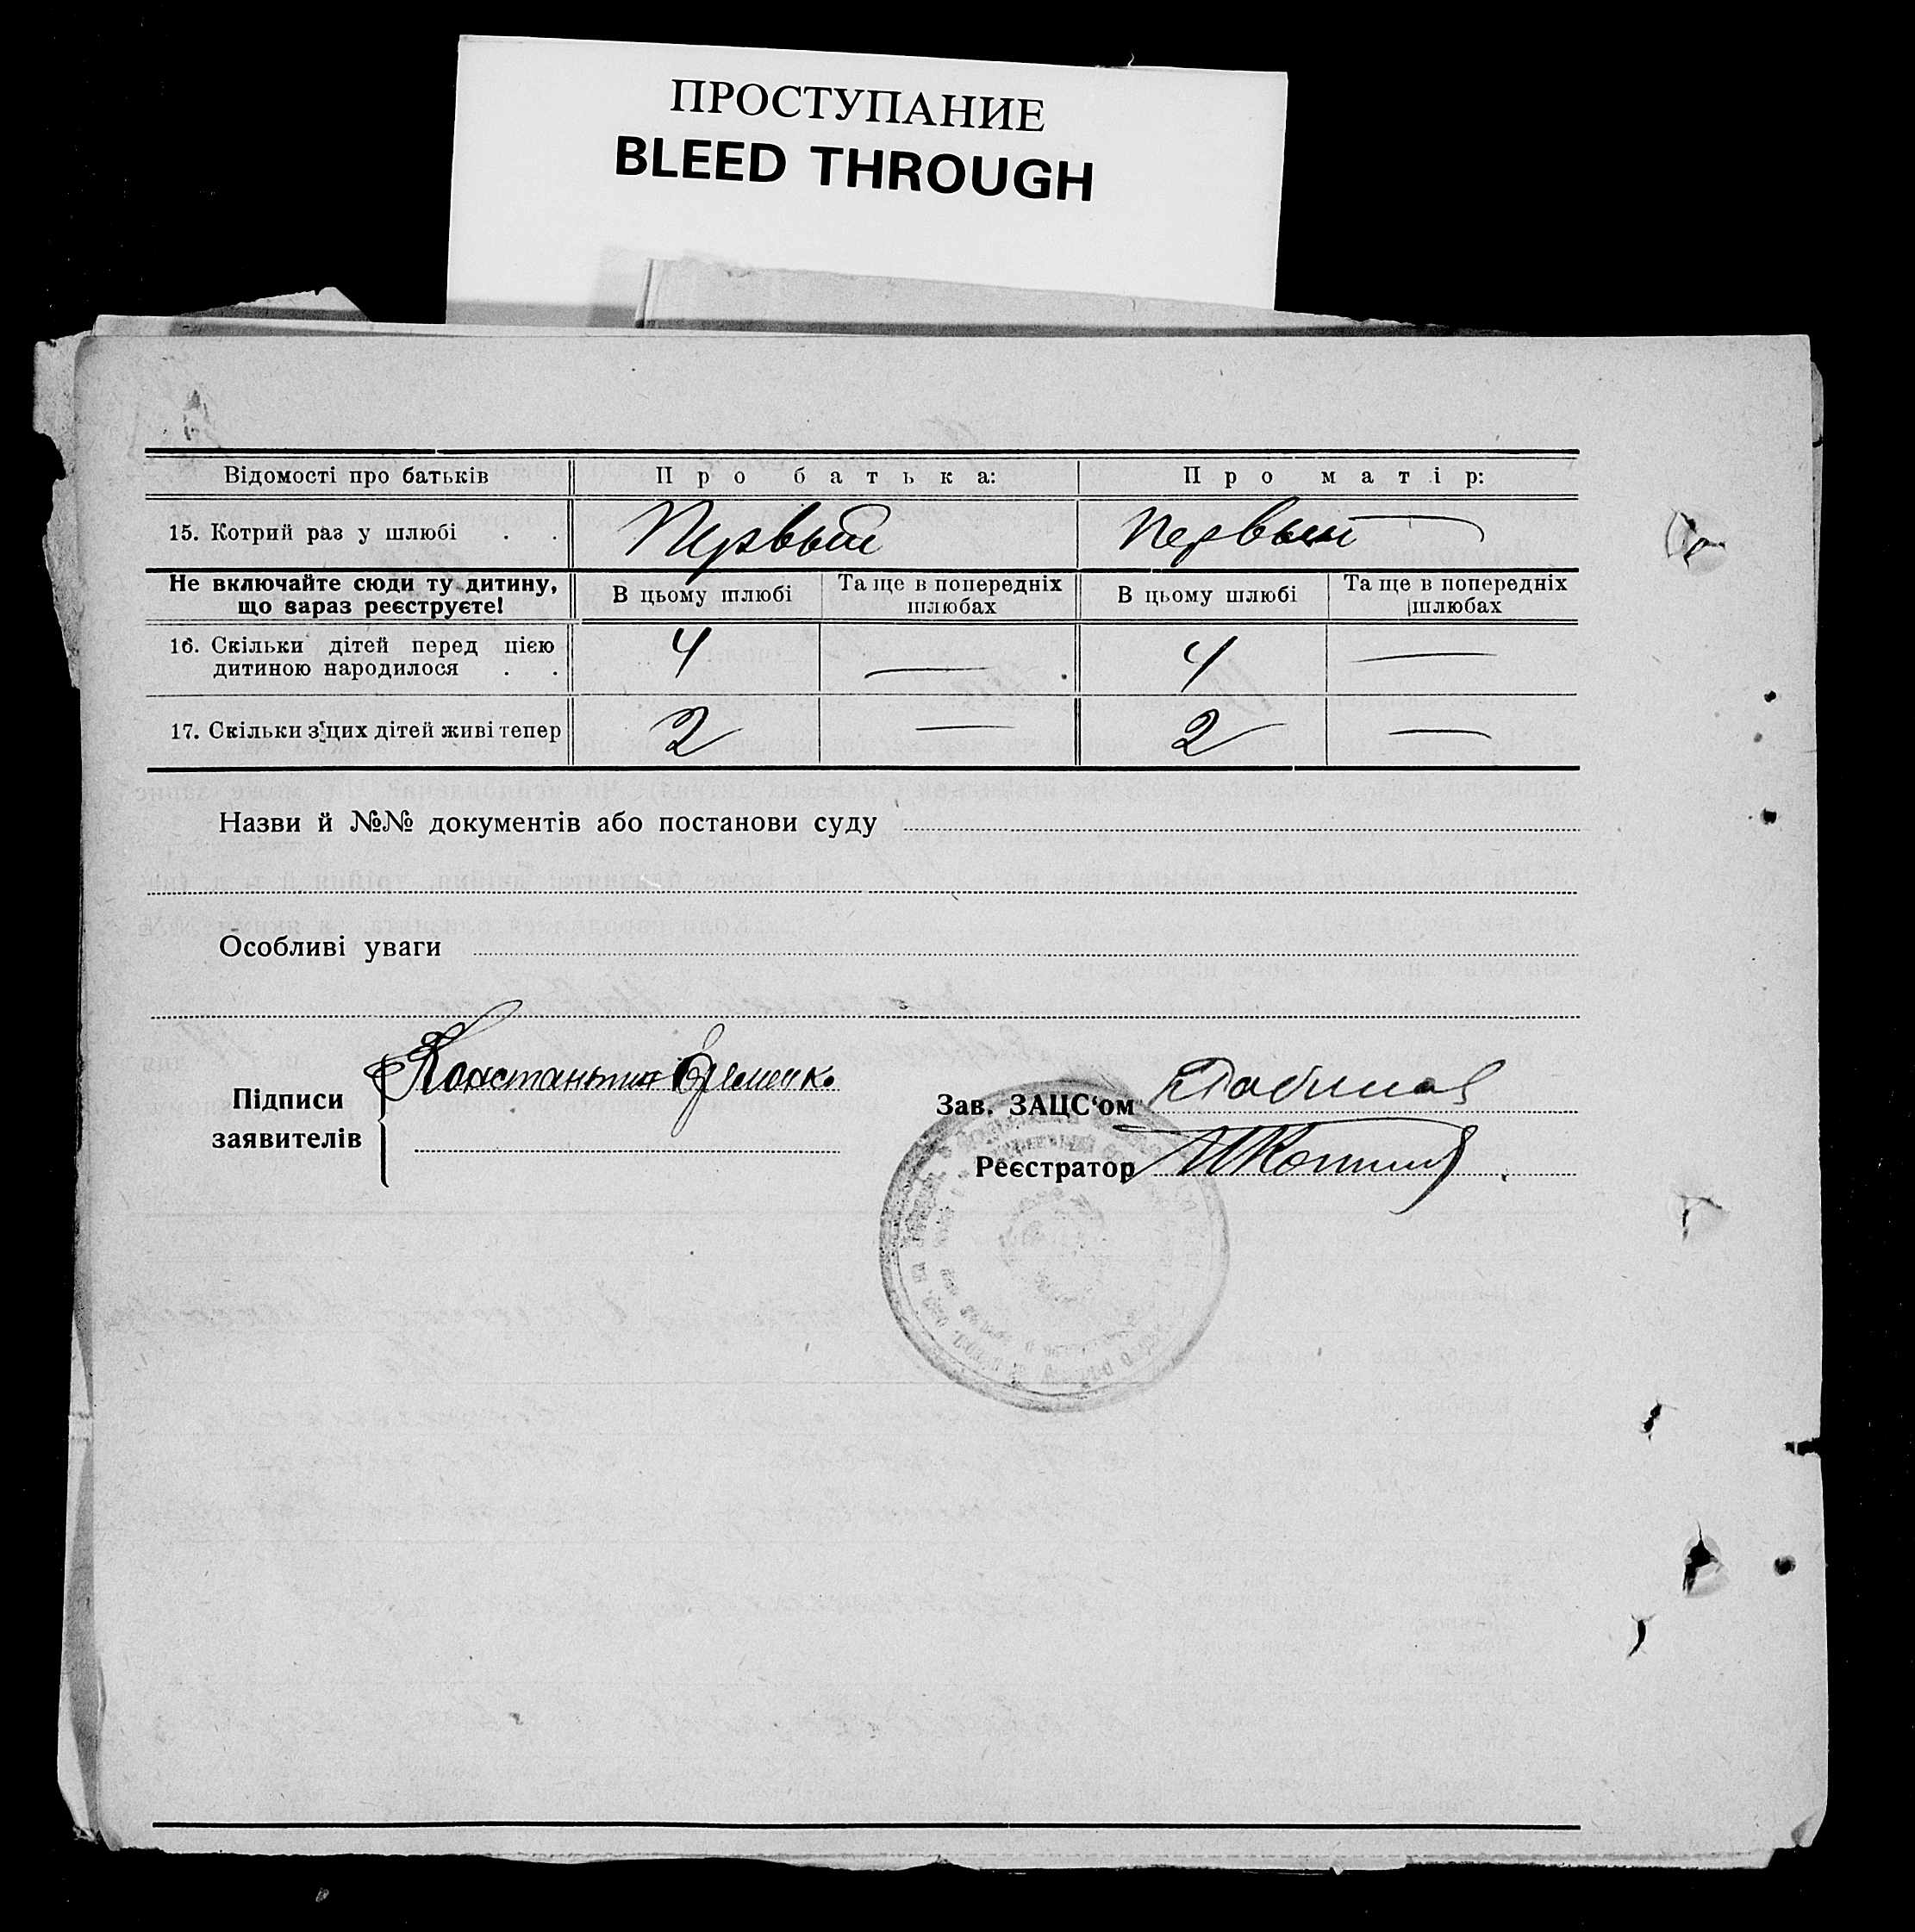 ПРОСТУПАНИЕ
BLEED THROUGH
Відомості про батьків Про батька: Про матір:
15. Котрий раз у шлюбі . . Первый Первый
Не включайте сюди ту дитину, що зараз реєструєте! В цьому шлюбі Та ще в попередніх шлюбах В цьому шлюбі Та ще в попередніх шлюбах
16. Скільки дітей перед цією дитиною народилося . . 4 — 4 —
17. Скільки з цих дітей живі тепер 2 — 2 —
Назви й №№ документів або постанови суду
Особливі уваги
Підписи заявителів Константин Еременко
Зав. ЗАЦС‘ом
Реєстратор